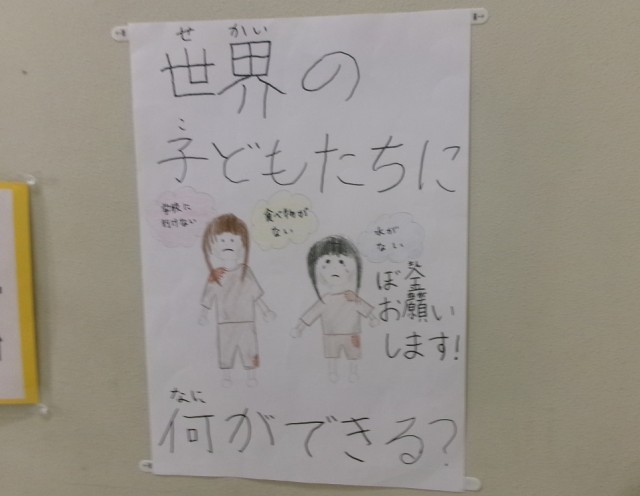 せかい
世界の
こ
子どもたちに
学校に
行けない
食べ物が
ない
水が
ない
ぼ金
お願い
します!
なに
何ができる?